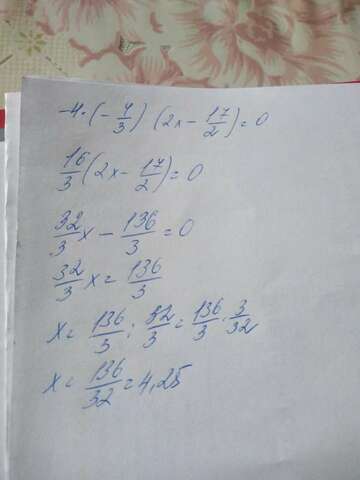 -4·(-4/3) (2x - 17/2) = 0
16/3 (2x - 17/2) = 0
32/3 x - 136/3 = 0
32/3 x = 136/3
x = 136/3 : 32/3 = 136/3 · 3/32
x = 136/32 = 4,25